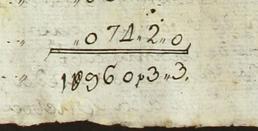 „074„2„0
18960p3„3.